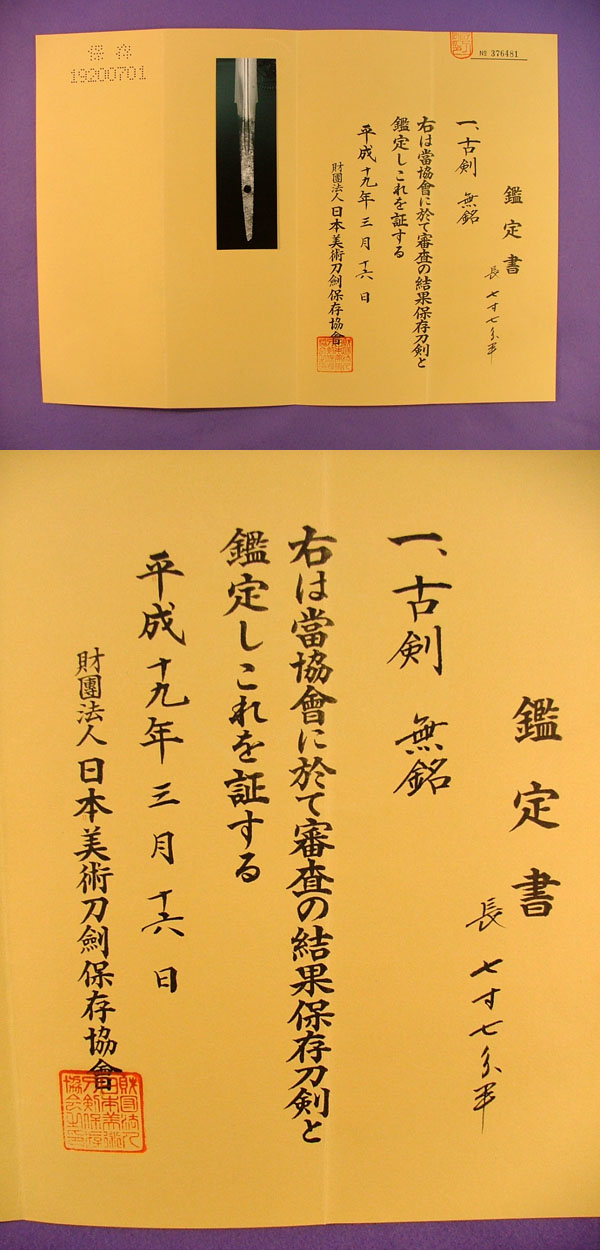 保存
19200701
№ 376481
鑑定書
長 七寸七分半
一、古剣 無銘
右は當協會に於て審査の結果保存刀剣と
鑑定しこれを証する
平成十九年三月十六日
財團法人日本美術刀劍保存協會
鑑定書
長 七寸七分半
一、古剣 無銘
右は當協會に於て審査の結果保存刀剣と
鑑定しこれを証する
平成十九年三月十六日
財團法人日本美術刀劍保存協會